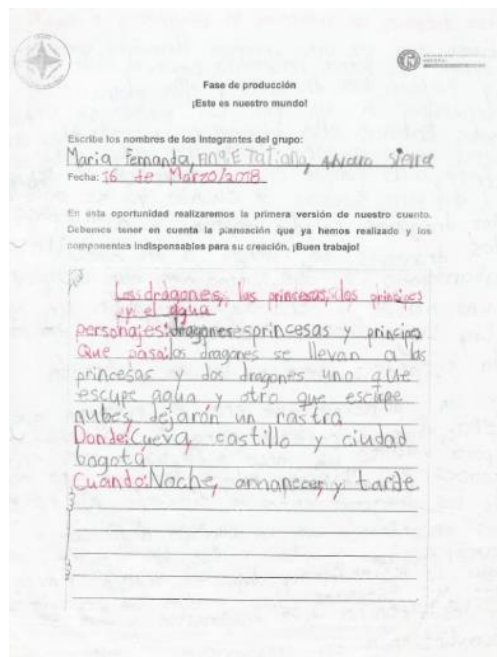 Fase de producción
¡Este es nuestro mundo!
Escribe los nombres de los integrantes del grupo:
Maria Fernanda, Tatiana, Alvaro Sierra
Fecha: 16 de Marzo/2018
En esta oportunidad realizaremos la primera versión de nuestro cuento.
Debemos tener en cuenta la planeación que ya hemos realizado y los
componentes indispensables para su creación. ¡Buen trabajo!
Los dragones, las princesas, los principes
en el agua
personajes: dragones princesas y principe
Que pasa: los dragones se llevan a las
princesas y dos dragones uno que
escupe agua y otro que escupe
nubes, dejarón un rastra
Donde: Cueva, castillo y ciudad
bogotá
Cuando: Noche, amanecer, y tarde